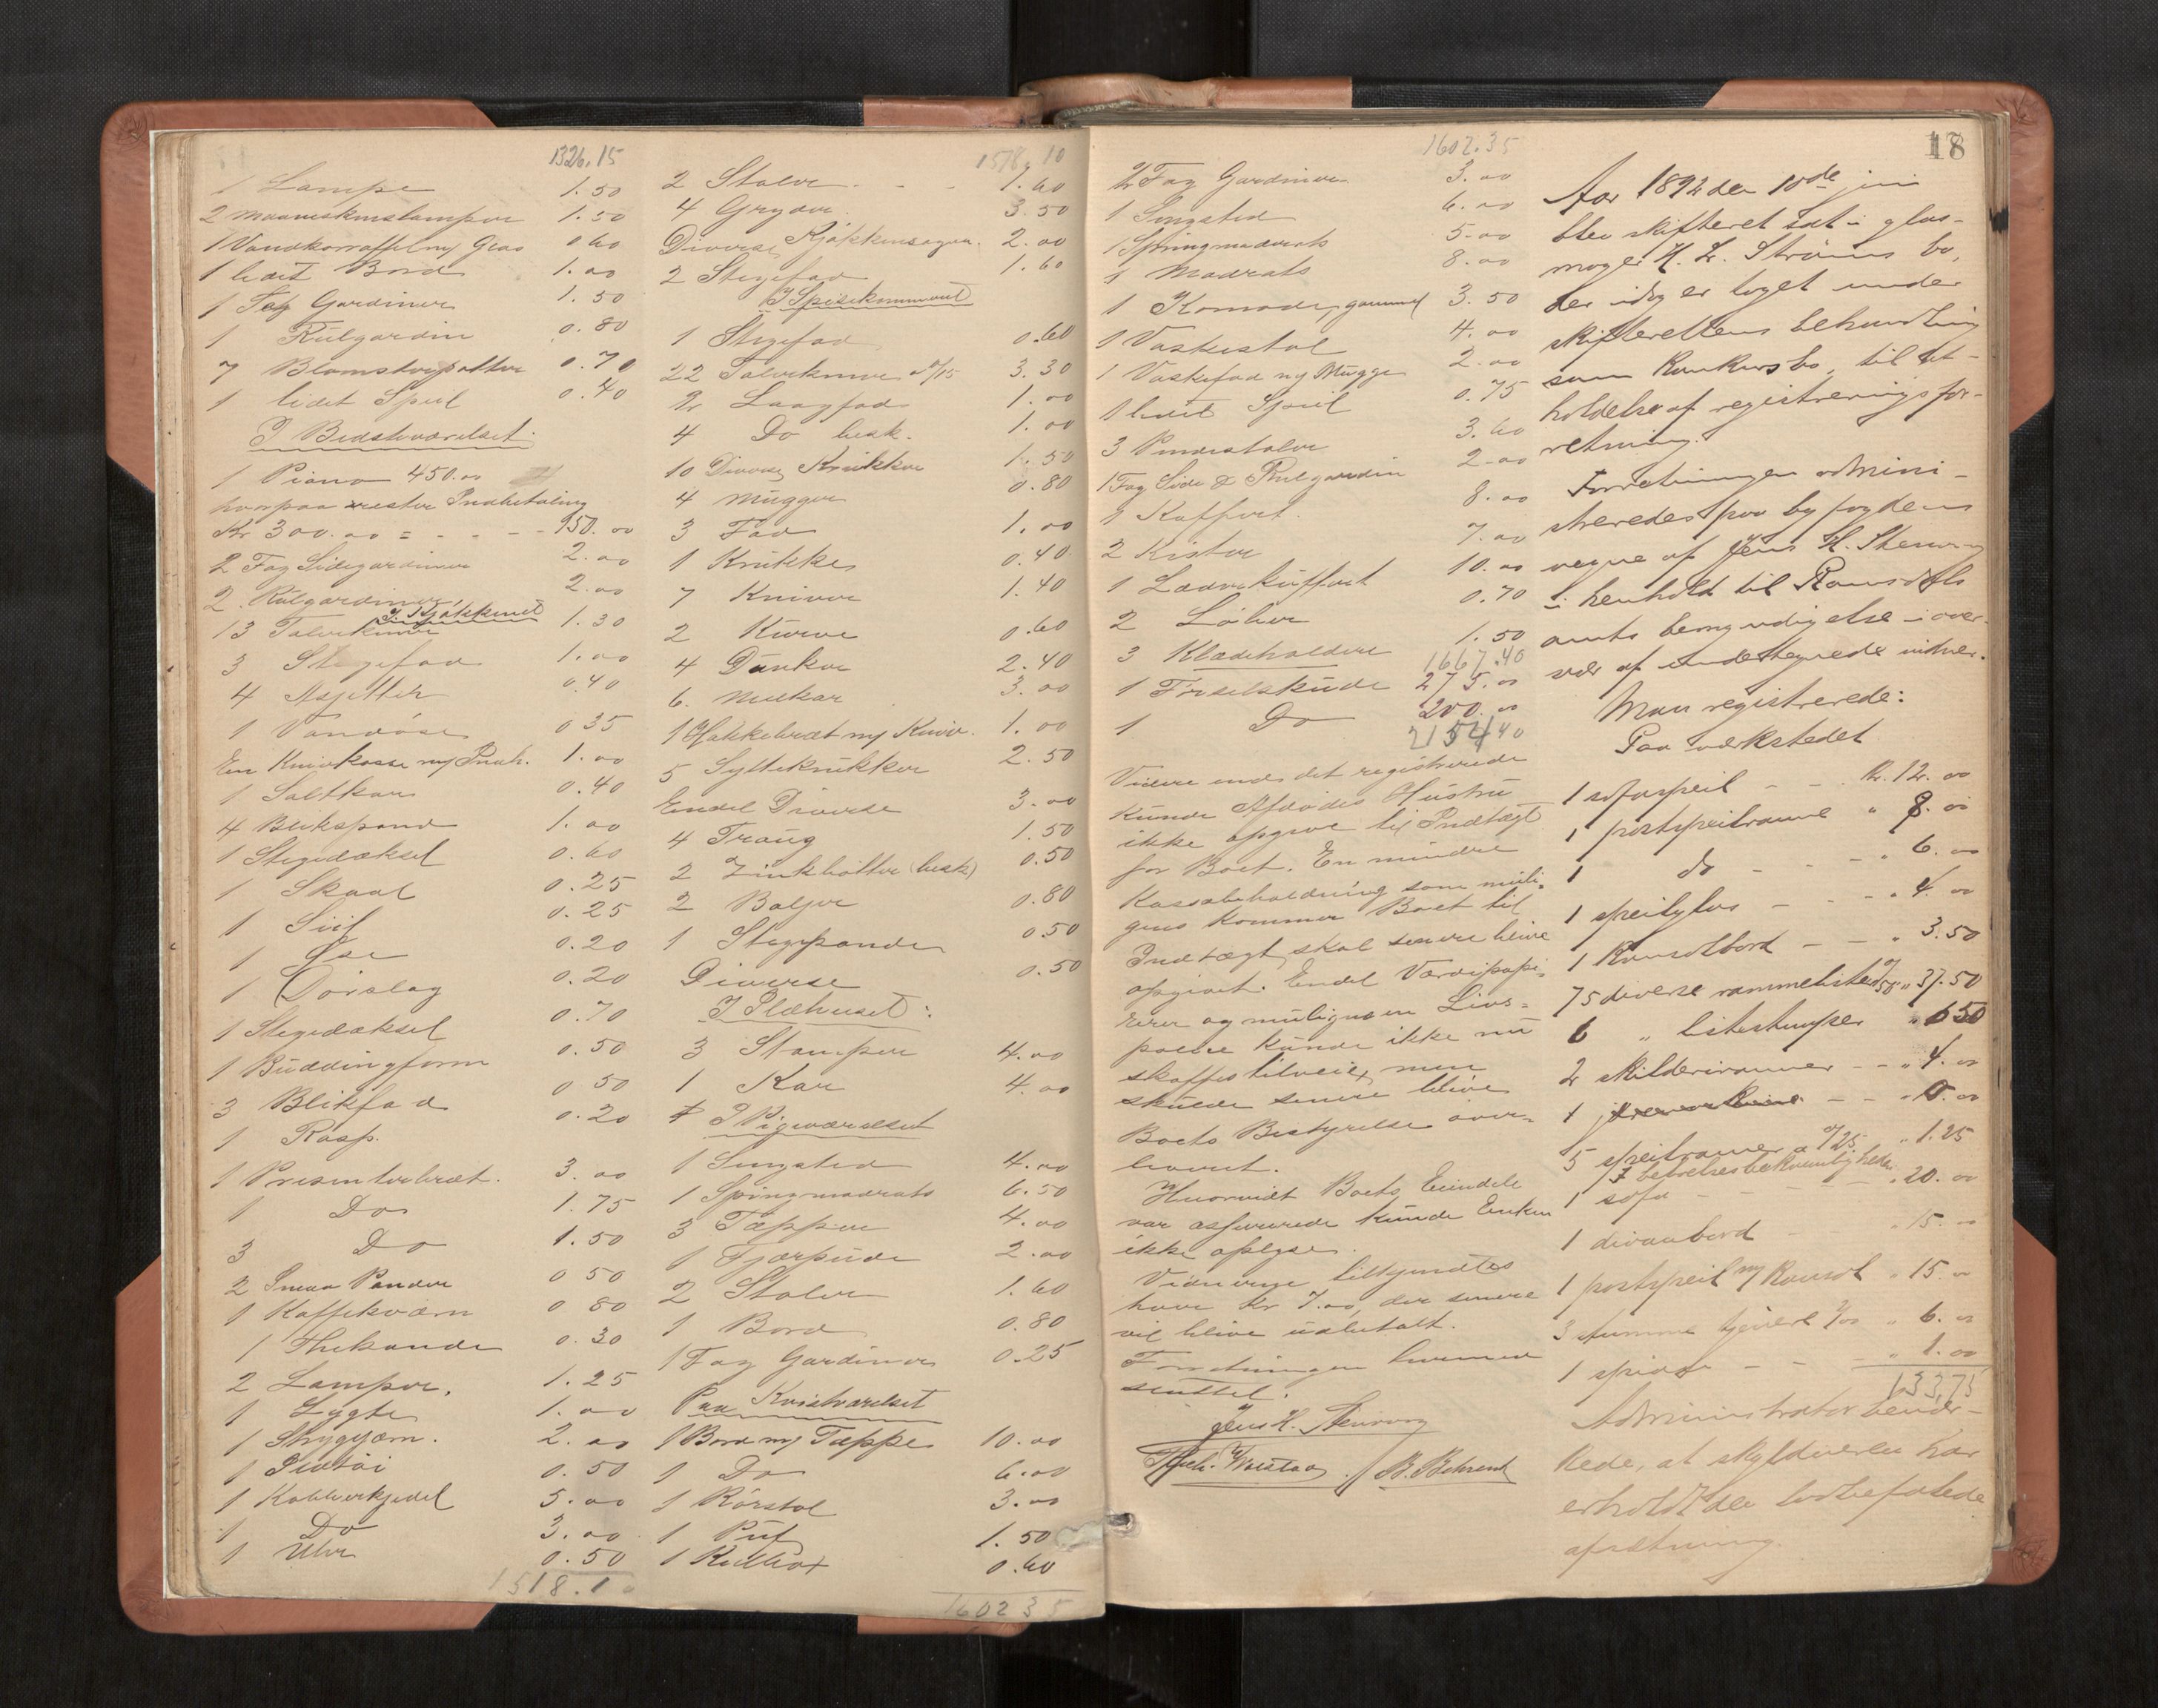 1326.15
1 Lampe 1.50
2 Maaneskinslamper 1.50
1 Vandkaraffel m/ Glas 0 60
1 lidet Bord 1.00
1 Fag Gardiner 1.50
1 Rulgardin 0.80
7 Blomsterpotter 0.70
1 lidet Speil 0.40
I Bedsteværelset:
1 Piano 450.00
hvorpaa rester Indbetaling
Kr 300.00 = - - - - 150.00
2 Fag Sidegardiner 2.00
2 Rulgardiner 2.00
I Kjøkkenet
13 Talerkener 1.30
3 Stegefad 1.00
4 Asjetter 0.40
1 Vandøse 0 35
En Knivkasse m/ Indh. 1.00
1 Saltkar 0.40
4 Blikspand 1.00
1 Stegedæksel 0.60
1 Skaal 0.25
1 Siil 0.25
1 Øse 0.20
1 Dørslag 0.20
1 Stegedæksel 0.70
1 Buddingform 0.50
3 Blikfad 0 50
1 Rasp. 0.20
1 Presenterbræt. 3.00
1 Do 1.75
3 Do 1.50
2 Smaa Pander 0 50
1 Kaffekværn 0 80
1 Thekande 0.30
2 Lamper. 1.25
1 Lygte 1.00
1 Strygjern. 2.00
1 0.50
1 Kobberkjedel 5.00
1 Do 3.00
1 Uhr 0.50
1518.10
1518.10
2 Stoler - - - 1.60
4 Gryder 3.50
Diverse Kjøkkensager. 2.00
2 Stegefad 1.60
I Spisekammeret
1 Stegefad 0.60
22 Talerkener a 0/15 3.30
2 Laagfad 1.00
4 Do besk. 1.00
10 Diverse Krukker 1.50
4 Mugger 0.80
3 Fad 1.00
1 Krukke 0.40
7 Kniver 1.40
2 Kurve 0.60
4 Dunker 2.40
6. Melkar 3.00
1 Hakkebræt m/ Kniv. 1.00
5 Syltekrukker 2.50
Endel Diverse 3.00
4 Traug 1.50
2 Zinkbøtter (besk) 0.50
2 Baljer 0.80
1 Stegepande 0 50
Diverse 0.50
I Ildhuset:
3 Stamper 4.00
1 Kar 4.00
I Pigeværelset
1 Sengsted 4.00
1 Springmadrats 6.50
3 Tæpper 4.00
1 Fjærpude 2.00
2 Stoler 1.60
1 Bord 0.80
1 Fag Gardiner 0.25
Paa Kvistværelset
1 Bord m/ Tæppe 10.00
1 Do 6.00
1 Rørstol 3.00
1 Puf 1.50
1 Kulbox 0.60
1602 35
1602.35
2 Fag Gardiner 3.00
1 Sengsted 6.00
1 Springmadrats 5.00
1 Madrats 8.00
1 Komode, gammel 3.50
1 Vaskestol 4.00
1 Vaskefad m/ Mugge 2.00
1 lidet Speil 0.75
3 Pindestoler 3.60
1 Fag Side & Rulgardin 2.00
1 Koffert 8.00
2 Kister 7.00
1 Læderkuffert 10.00
2 Løber 0.70
3 Klædeholdere 1.50
1667.40
1 Førselskude 275.00
1 Do 200.00
2154 40
Videre end det registrerede
kunde Afdødes Hustru
ikke opgive til Indtægt
for Boet. En mindre
Kassabeholdning som muli-
gens kommer Boet til
Indtægt skal senere blive
opgivet. Endel Værdipapi-
rer og muligens en Livs-
police kunde ikke nu
skaffes tilveie, men
skulde senere blive
Boets Bestyrelse over-
leveret.
Hvorvidt Boets Eiendele
var assurerede kunde Enken
ikke oplyse.
Vidnerne tilkjendtes
hver Kr 7.00, der senere
vil blive udbetalt.
Forretningen hermed
sluttet.
Jens H. Stenvig
B. Behrend
18
Aar 1892 den 10de juni
blev skifteret sat i glas-
mager H. L. Strøms bo,
der idag er taget under
skifterettens behandling
som konkursbo, til af-
holdelse af registreringsfor-
retning.
Forretningen admini-
streredes paa byfogdens
vegne af Jens H. Stenvig
i henhold til Romsdals
amts bemyndigelse i over-
vær af undertegnede vidner.
Man registrerede:
Paa værkstedet
1 sofaspeil - - - Kr. 12.00
1 postspeilramme " 8.00
1 do - - - " 6.00
1 speilglas - - - " 4.00
1 Konsolbord - - " 3.50
75 diverse rammelister a 0/50 " 37.50
6 " listestumper " 1 50
2 skilderirammer - - " 4.00
5 speilrammer a 0/25 " 1.25
I beboelsesbekvemligheden
1 sofa - - - - " 20.00
1 divanbord - " 15.00
1 postspeil m/ Konsol " 15.00
3 stumme tjenere 2/00 " 6.00
1 - - - " 1.00
133,75
Administrator bemær-
kede, at skyldneren har
erholdt den lovbefalede
afsætning.